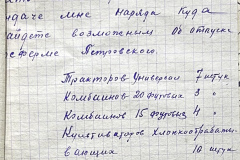 выдаче мне Наряда Куда
найдете возможним Об отпуске
ферме Петровского.
Тракторов Универсал 7 штук
Комбайнов 20 футовых 3 "
Комбайнов 15 футовых 4 "
Культиваторов Хлопкообрабаты-
вающих 10 штук